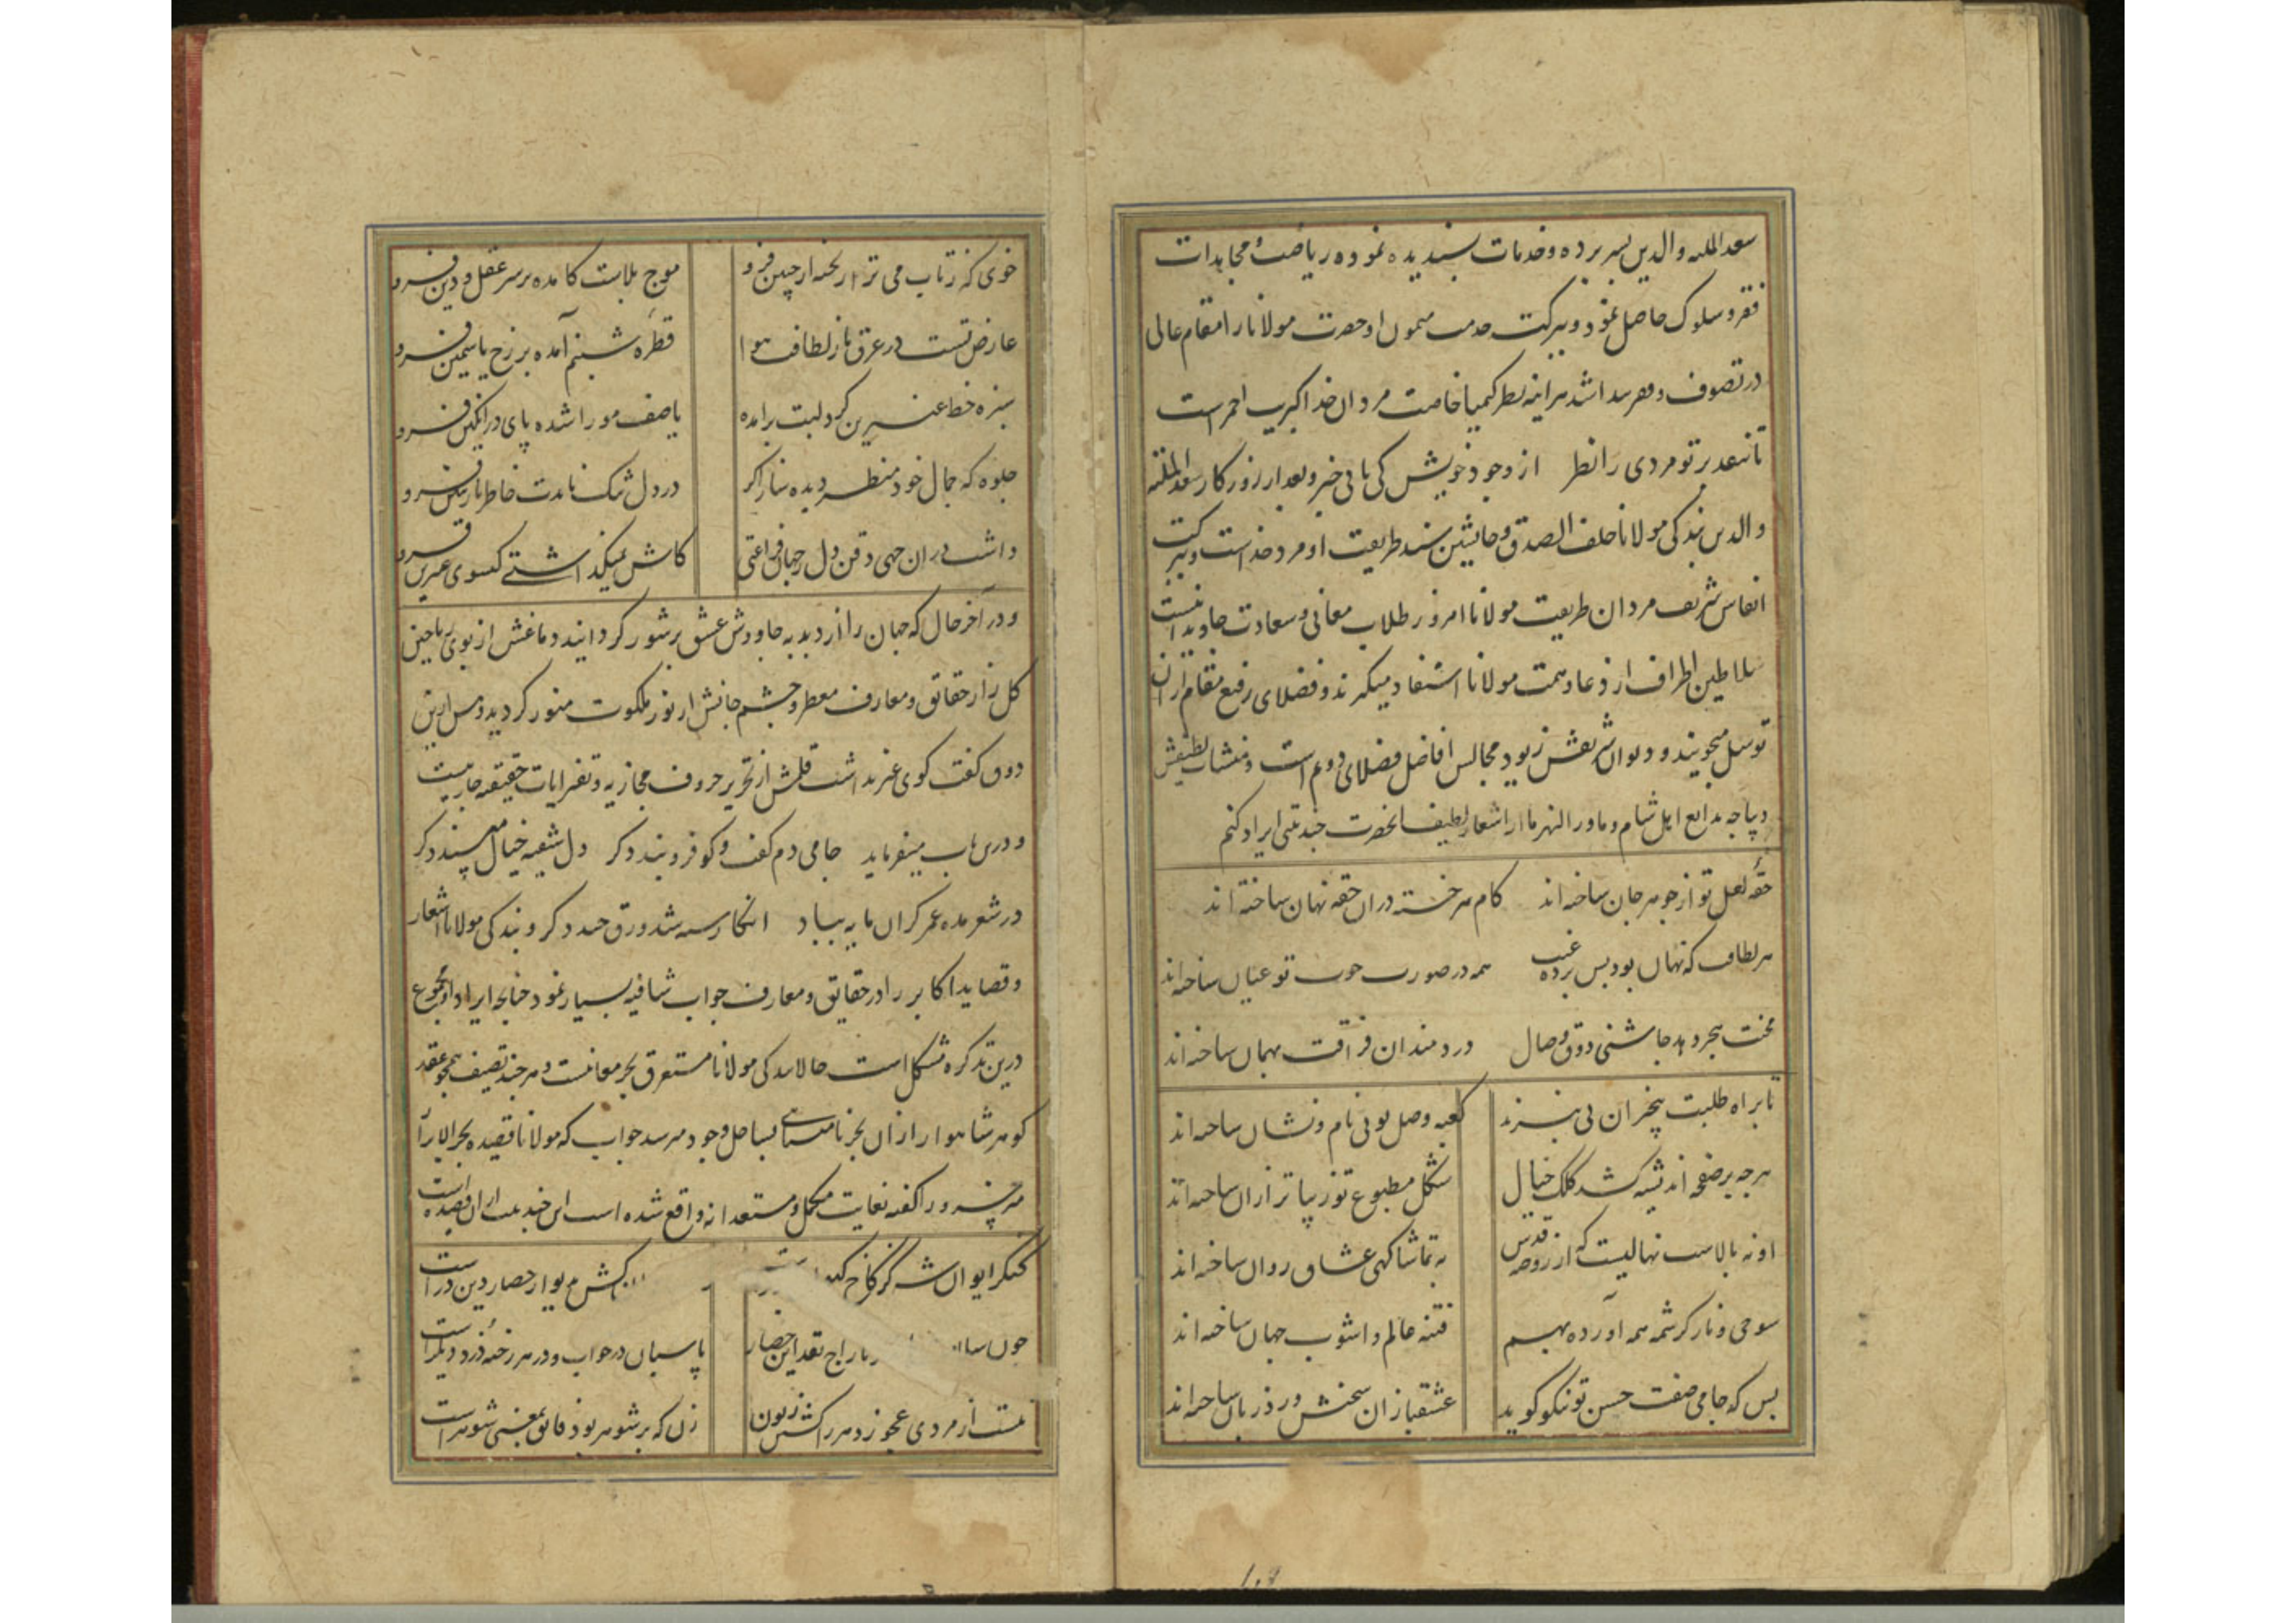 سعد المله والدین بسر برده و خدمات پسندیده نموده ریاضت و مجاهدات
فقر و سلوک حاصل نمود و ببرکت خدمت میمون او حضرت مولانا را مقام عالی
در تصوف و فقر پیدا شد هر اینه نظر کیمیا خاصیت مردان خدا کبریت احمر است
تا نیفتد بر تو مردی را نظر از وجود خویش کی یابی خبر و بعد از روزگار سعد المله
والدین بندگی مولانا خلف الصدق و جانشین مسند طریقت او مرد خداست و ببرکت
انفاس شریف مردان طریقت مولانا امروز طلاب معانی و سعادت جاودانیست
سلاطین اطراف از دعا و همت مولانا استفاد میگیرند و فضلای رفیع مقام از ان
توسل میجویند و دیوان شریفش زیور مجالس افاضل فضلای روم است و منشات لطیفش
دیباجه بدایع اهل شام و ماوراء النهر ما از اشعار لطیف انحضرت چند بیتی ایراد کنم
حقه لعل تو از جوهر جان ساخته اند کام هر خسته دران حقه نهان ساخته اند
هر لطافت که نهان بود پس پرده غیب همه در صورت خوب تو عیان ساخته اند
محنت هجر دهد چاشنی ذوق وصال دردمندان فراقت بهمان ساخته اند
تا براه طلبت بیخبران پی نبرند کعبه وصل تو بی نام و نشان ساخته اند
هرچه بر صفحه اندیشه کشد کلک خیال شکل مطبوع تو زیباتر ازان ساخته اند
او نه بالاست نهالیست که از روضه قدس به تماشاگهی عشاق روان ساخته اند
شوخی و ناز کرشمه همه آورده بهم فتنه عالم و اشوب جهان ساخته اند
بس که جامی صفت حسن تو نیکو گوید عشقبازان سخنش ورد زبان ساخته اند
خوی که ز تاب می ترا ریخته از جبین فرو موج بلاست کامده بر سر عقل و دین فرو
عارض تست در عرق یا ز لطافت هوا قطره شبنم آمده بر رخ یاسمین فرو
سبزه خط عنبرین گرد لبت برامده یا صف مور را شده پای در انگبین فرو
جلوه که جمال خود منظر دیده ساز اگر در دل تنگ نایدت خاطر نازنین فرو
داشت دران چه ذقن دل ز جهان فراغتی کاش نمیگذاشتی گیسوی عنبرین فرو
و در آخر حال که جهان را از دبدبه جاووش عشق پر شور گردانید و دماغش از بوی ریاحین
گلزار حقائق و معارف معطر و چشم جانش از نور ملکوت منور گردید و پس ازین
ذوق گفت گوی غیر نداشت قلمش از تحریر حروف مجازیه و تقریر ایات حقیقه جاریست
و درین باب میفرماید جامی دم گفت و گو فرو بند دگر دل شیفته خیال مپسند دگر
در شعر مده عمر گران مایه بباد انگار سیه شد ورق چند دگر و بندگی مولانا اشعار
و قصاید اکابر را در حقایق و معارف جواب شافیه بسیار نمود چنانچه ایراد او مجموع
درین تذکره مشکل است حالا بندگی مولانا مستغرق بحر معانیست و هر چند تصنیف همچو عقد
گوهر شاهوار ازان بحر نامتناهی بساحل وجود میرسد جواب که مولانا قصیده بحر الابرار
میر خسرو را گفته بغایت مکمل و مستعدانه واقع شده است این چند بیت از ان قصیده است
کنگر ایوان شه کز کاخ دیوار حصار دین در است
چون پاسبان در خواب و در هر رخنه دزد دیگر است
نیست از مردی عجوز دهر را گشتن زبون زن که بر شوهر بود فائق بمعنی شوهر است